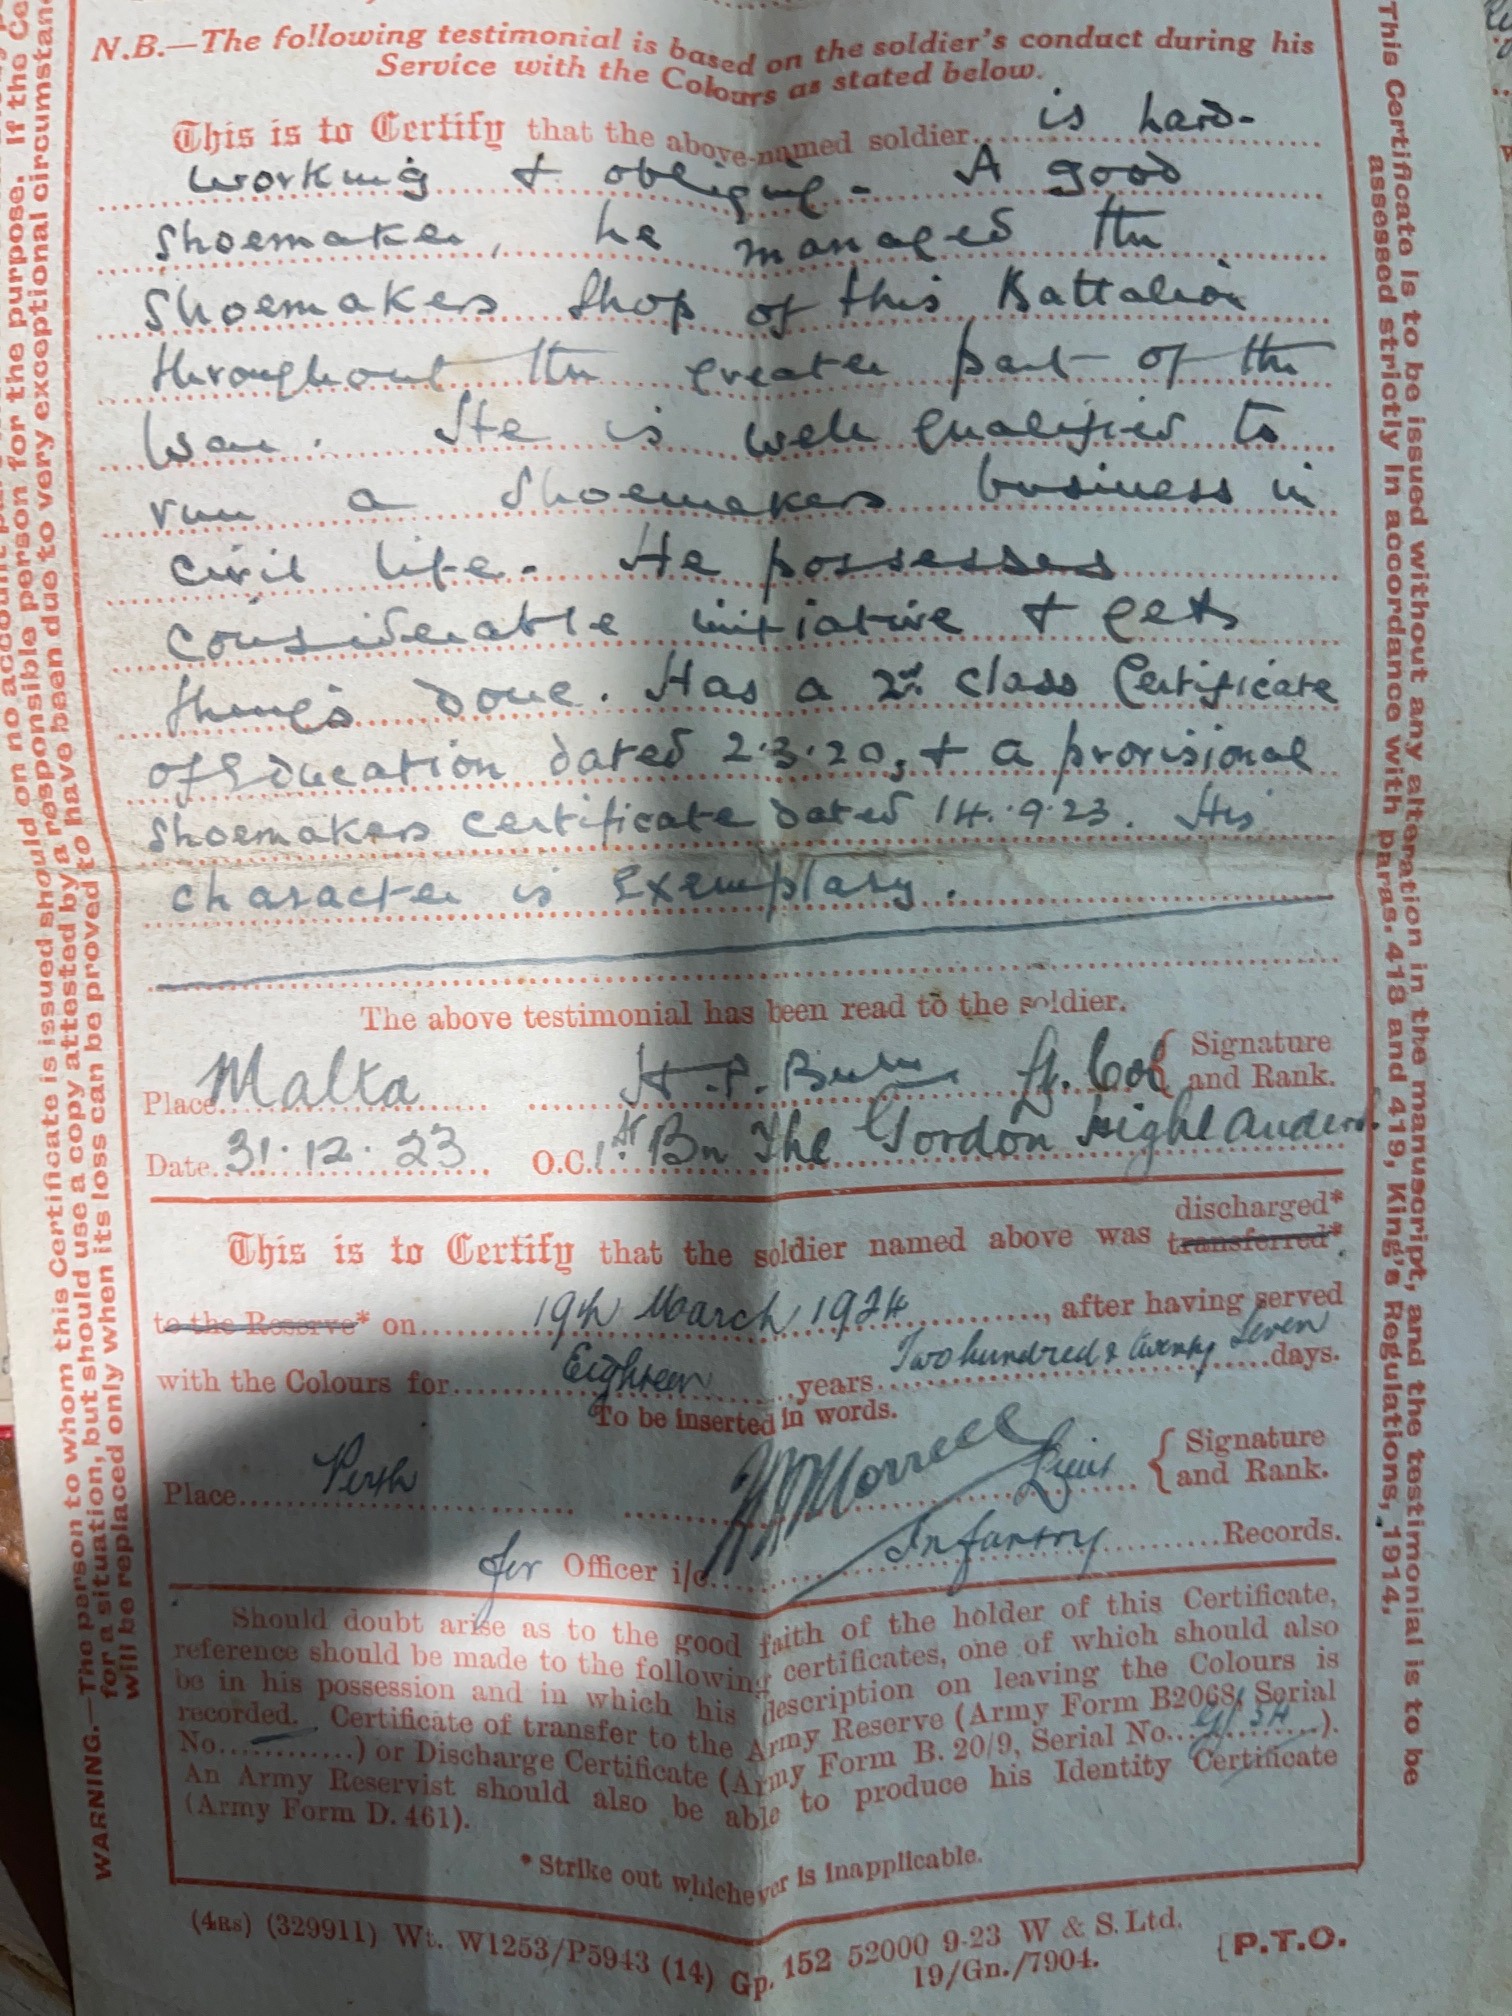 N.B.—The following testimonial is based on the soldier's conduct during his
Service with the Colours as stated below.
This is to Certify that the above-named soldier is hard-
working & obliging - A good
shoemaker, he managed the
Shoemakers Shop of this Battalion
throughout the greater part of the
war. He is well qualified to
run a Shoemakers business in
civil life. He possesses
considerable initiative & gets
things done. Has a 2nd class Certificate
of Education dated 2.3.20, & a provisional
Shoemakers certificate dated 14.9.23. His
character is Exemplary.
The above testimonial has been read to the soldier.
Place Malta H.P. Lt. Col { Signature and Rank.
Date 31.12.23 O.C. 1st Bn The Gordon Highlanders.
This is to Certify that the soldier named above was discharged* transferred*
to the Reserve* on 19th March 1924, after having served
with the Colours for Eighteen years Two hundred & twenty seven days.
To be inserted in words.
Place Perth Morrell Lieut { Signature and Rank.
for Officer i/c Infantry Records.
Should doubt arise as to the good faith of the holder of this Certificate,
reference should be made to the following certificates, one of which should also
be in his possession and in which his description on leaving the Colours is
recorded. Certificate of transfer to the Army Reserve (Army Form B2068, Serial
No. ) or Discharge Certificate (Army Form B. 20/9, Serial No. ).
An Army Reservist should also be able to produce his Identity Certificate
(Army Form D. 461).
* Strike out whichever is inapplicable.
(4RS) (329911) Wt. W1253/P5943 (14) Gp. 152 52000 9-23 W & S. Ltd.
19/Gn./7904.
[P.T.O.
WARNING.—The person to whom this Certificate is issued should on no account
for a situation, but should use a copy attested by a responsible person for the purpose. If the Ce
will be replaced only when its loss can be proved to have been due to very exceptional circumstan
This Certificate is to be issued without any alteration in the manuscript, and the testimonial is to be
assessed strictly in accordance with paras. 418 and 419, King's Regulations, 1914.